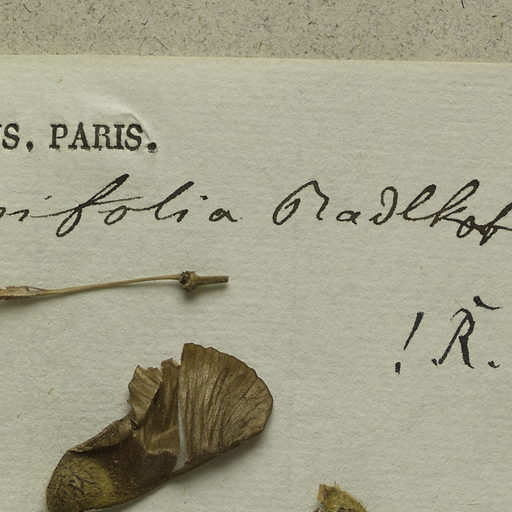 S. PARIS.
ifolia Radlkof
! R̆.